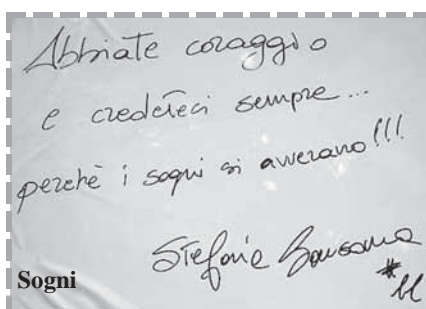 Abbiate coraggio
e credeteci sempre...
perchè i sogni si avverano!!!
Stefania
Sogni